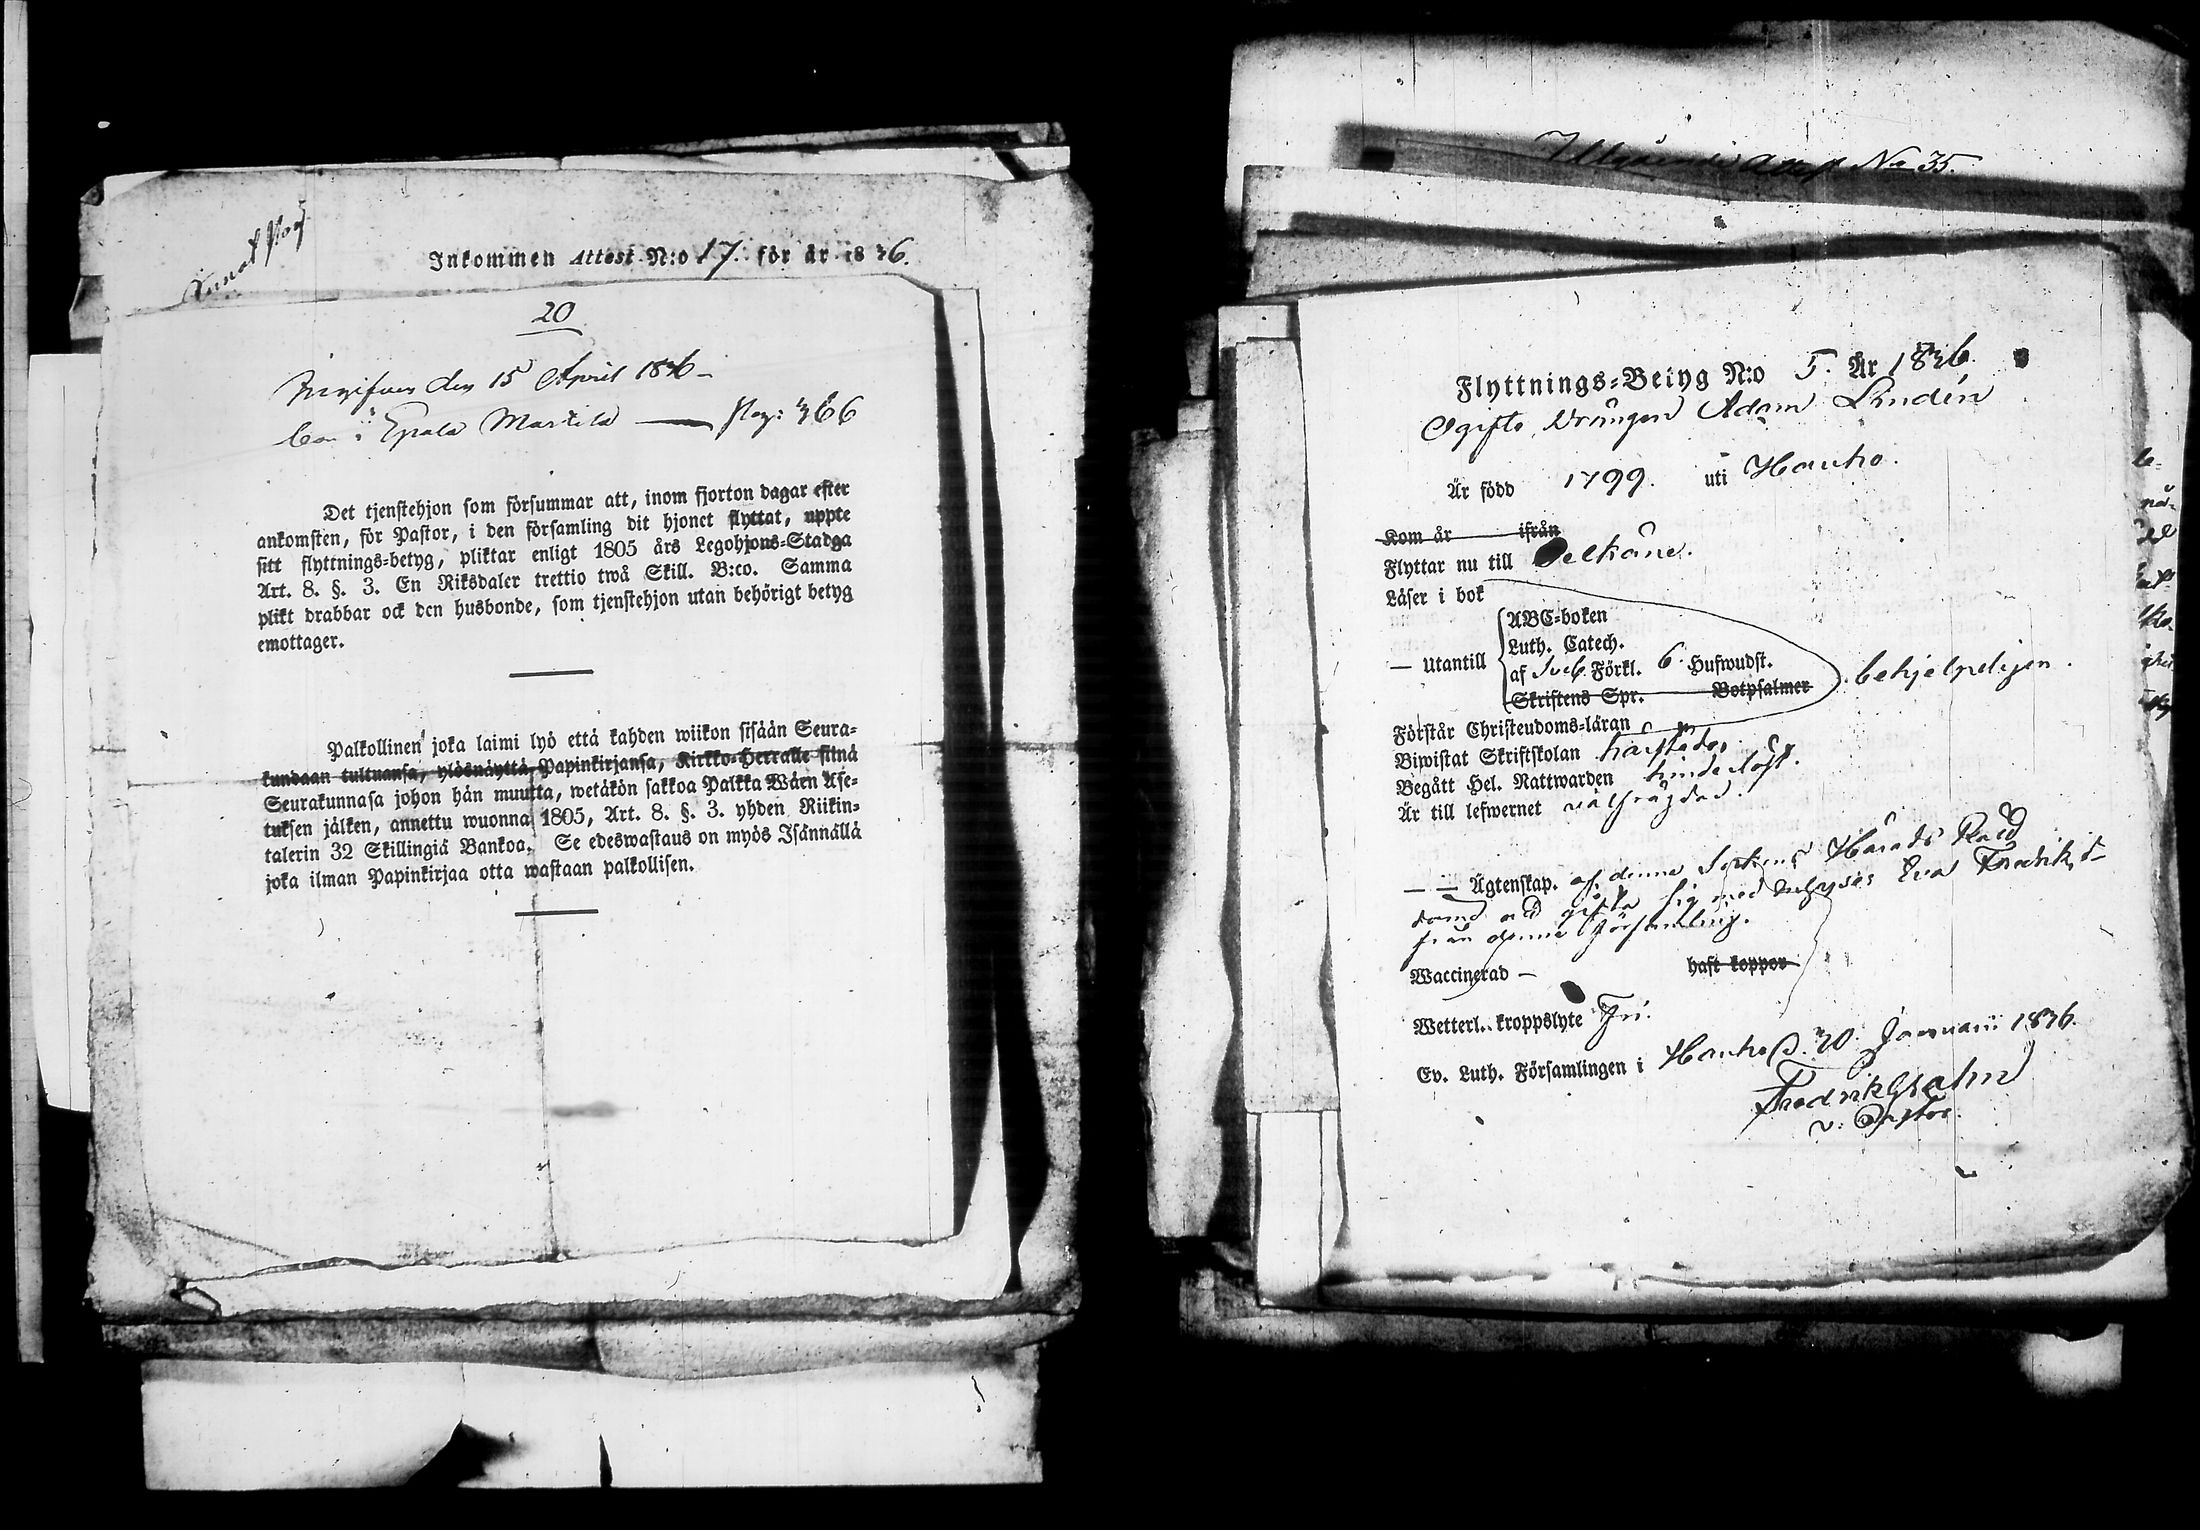 Inkommen Attest N:o 17. för år 1836.
20
den 15 April 1836
i Epala Marttila — pag: 366
Det tjenstehjon som försummar att, inom fjorton dagar efter
ankomsten, för Pastor, i den församling dit hjonet flyttat, uppte
sitt flyttnings=betyg, pliktar enligt 1805 års Legohjons=Stadga
Art. 8. §. 3. En Riksdaler trettio twå Skill. B:co. Samma
plikt drabbar ock den husbonde, som tjenstehjon utan behörigt betyg
emottager.
Palkollinen joka laimi lyö että kahden wiikon sisään Seura=
kundaan tultuansa, ylösnäyttä Papinkirjansa, Kirkko=Herralle siinä
Seurakunnasa johon hän muutta, wetäkön sakkoa Palkka Wäen Ase=
tuksen jälken, annettu wuonna 1805, Art. 8. §. 3. yhden Riikin=
talerin 32 Skillingiä Bankoa. Se edeswastaus on myös Isännällä
joka ilman Papinkirjaa otta wastaan palkollisen.
Utgående Attest No 35.
Flyttnings=Betyg N:o 5. År 1836.
Ogifte Drängen Adam Lindén
Är född 1799. uti Hauho.
Kom år ifrån
Flyttar nu till Pelkäne.
Läser i bok
ABC=boken
Luth. Catech.
— Utantill af Sveb. Förkl. 6 Hufwudst. behjelpeligen.
Skriftens Spr. Botpsalmer
Förstår Christendoms=läran
Biwistat Skriftskolan
Begått Hel. Nattwarden
Är till lefwernet välfräjdad.
— — Ägtenskap. af denna Härads Rätt
gifta sig med Eva Fredriksd=
från denna församling.
Waccinerad — haft koppor
Wetterl. kroppslyte Fri.
Ev. Luth. Församlingen i Hauho d. 30 Januarii 1836.
Fredrik
v. Pastor.